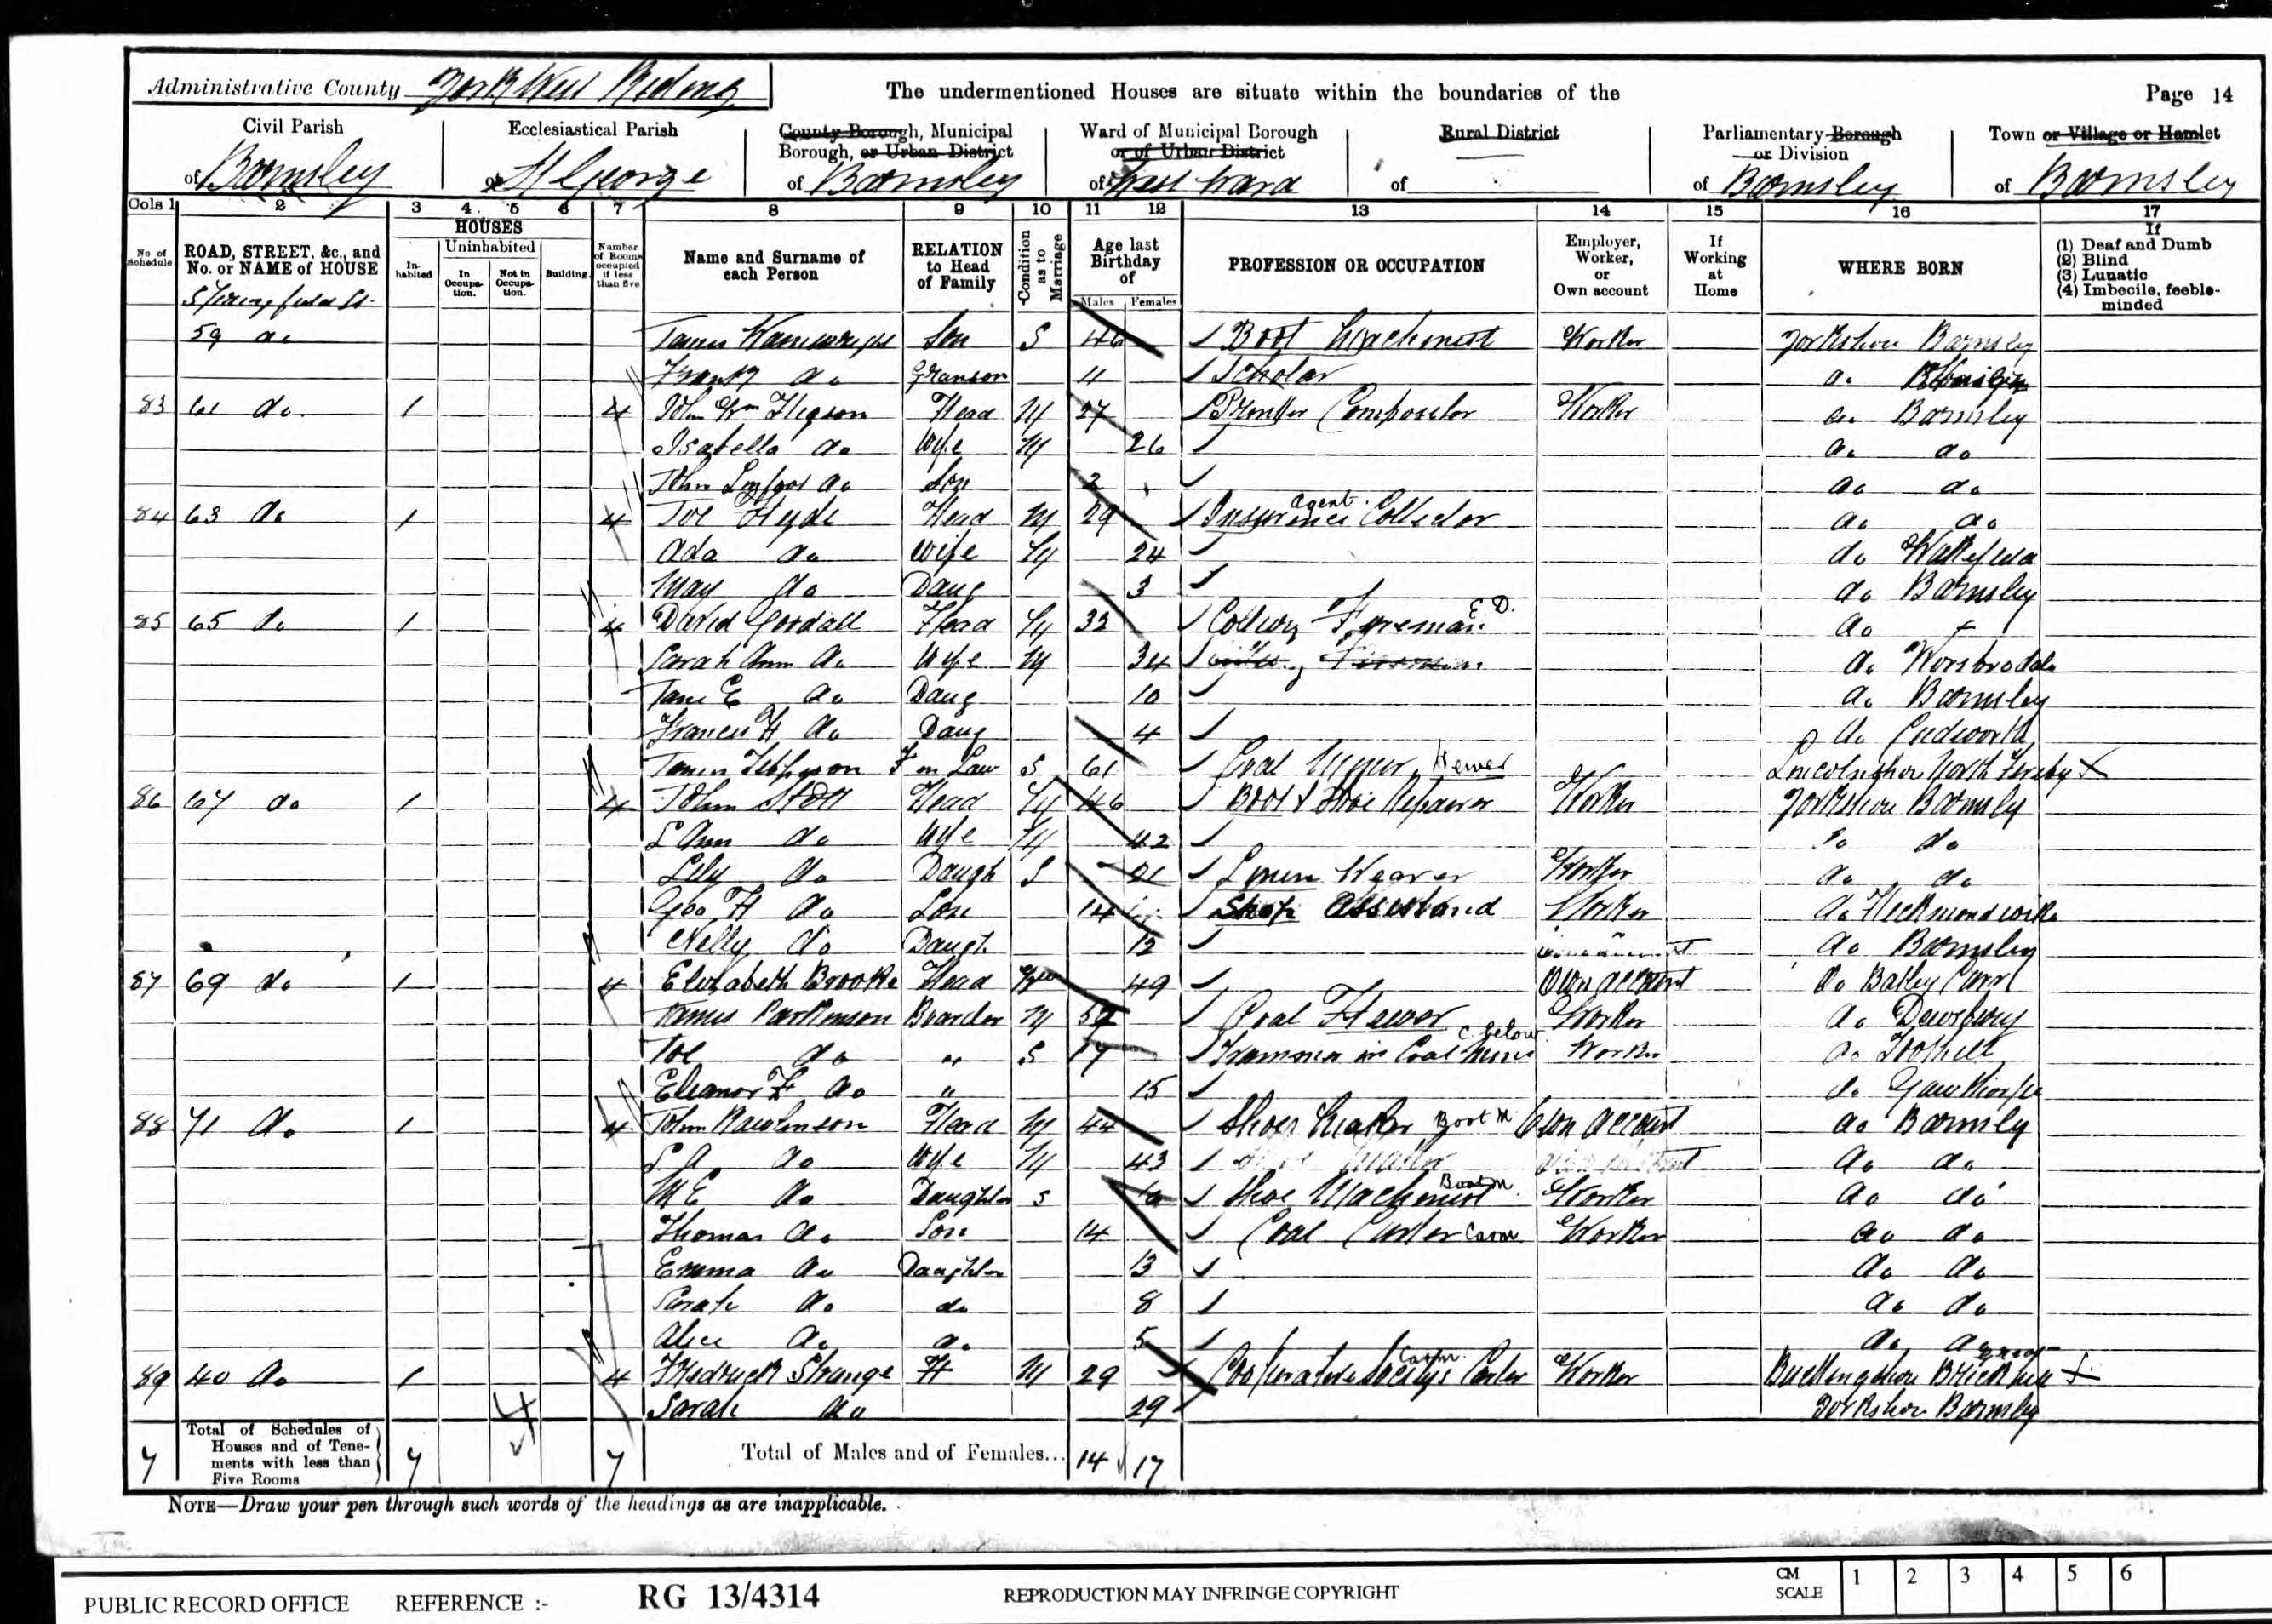 Administrative County York West Riding
The undermentioned Houses are situate within the boundaries of the
Page 14
Civil Parish
of Barnsley
Ecclesiastical Parish
of St George
County Borough, Municipal
Borough, or Urban District
of Barnsley
Ward of Municipal Borough
or of Urban District
of West Ward
Rural District
of
Parliamentary Borough
or Division
of Barnsley
Town or Village or Hamlet
of Barnsley
Cols 1 2 3 4 5 6 7 8 9 10 11 12 13 14 15 16 17
No of Schedule
ROAD, STREET, &c., and No. or NAME of HOUSE
HOUSES
In-habited
Uninhabited
In Occupa-tion.
Not in Occupa-tion.
Building
Number of Rooms occupied if less than five
Name and Surname of each Person
RELATION to Head of Family
Condition as to Marriage
Age last Birthday of
Males Females
PROFESSION OR OCCUPATION
Employer, Worker, or Own account
If Working at Home
WHERE BORN
If
(1) Deaf and Dumb
(2) Blind
(3) Lunatic
(4) Imbecile, feeble-minded
59 do James Wainwright Son S 46 Boot Machinist Worker Yorkshire Barnsley
Frank do Granson 4 Scholar do
83 61 do 1 4 John Wm Higson Head M 27 Printer Compositor Worker do Barnsley
Isabella do Wife M 26 do do
John do Son 2 do do
84 63 do 1 4 Joe Hyde Head M 29 Insurance Agent Collector do do
Ada do Wife M 24 do Wakefield
May do Daug 3 do Barnsley
85 65 do 1 4 David Goodall Head M 32 Colliery Fireman E. D. do
Sarah Ann do Wife M 34 do Worsbrodale
Jane E do Daug 10 do Barnsley
Frances H do Daug 4 do Cudworth
James F in Law S 61 Coal Miner Hewer Lincolnshire North
86 67 do 1 4 John Stott Head M 46 Boot & Shoe Repairer Worker Yorkshire Barnsley
S Ann do Wife M 42 do do
Lily do Daugh S 21 Linen Weaver Worker do do
Geo H do Son 14 Shop Assistand Worker do Heckmondwike
Nelly do Daugh 12 do Barnsley
87 69 do 1 4 Elizabeth Brooke Head Wid 49 Own account do Batley Carr
James Parkinson Boarder M 52 Coal Hewer Worker do Dewsbury
Joe do " S 17 Trammer in Coal Mine below Worker do
Eleanor do " 15 do Gawthorpe
88 71 do 1 4 John Rawlinson Head M 44 Shoes Maker Boot M Own account do Barnsley
S A do Wife M 43 do do
M E do Daughter S Shoe Machinist Boot M Worker do do
Thomas do Son 14 Coal Carter Carm Worker do do
Emma do Daughter 13 do do
Sarah do do 8 do do
Alice do do 5 do do
89 40 do 1 4 Fredrick Strange H M 29 Cooperative Societys Carter Carm Worker Buckingshire Brickhill
Sarah do 29 Yorkshire Barnsley
7 Total of Schedules of Houses and of Tene-ments with less than Five Rooms 7 7 Total of Males and of Females... 14 17
NOTE—Draw your pen through such words of the headings as are inapplicable.
PUBLIC RECORD OFFICE REFERENCE :- RG 13/4314 REPRODUCTION MAY INFRINGE COPYRIGHT
CM SCALE 1 2 3 4 5 6